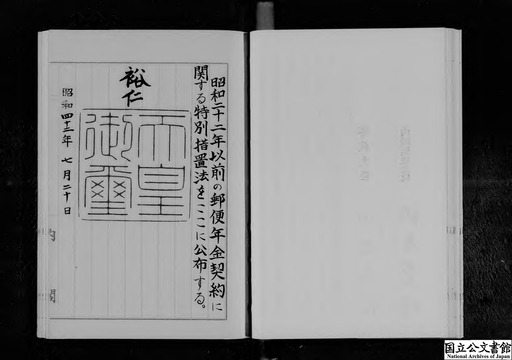 昭和二十二年以前の郵便年金契約に
関する特別措置法をここに公布する。
裕仁
天皇
御璽
昭和四十三年七月二十日
内閣
国立公文書館
National Archives of Japan